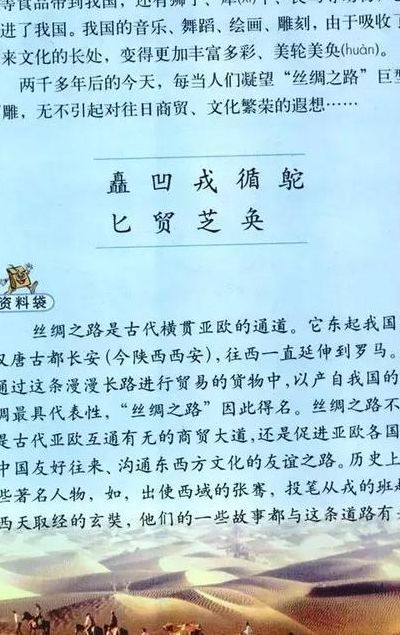 等食品带到我国，还有狮子、
进了我国。我国的音乐、舞蹈、绘画、雕刻，由于吸收了
来文化的长处，变得更加丰富多彩、美轮美奂(huàn)。
两千多年后的今天，每当人们凝望“丝绸之路”巨型
雕，无不引起对往日商贸、文化繁荣的遐想……
矗 凹 戎 循 鸵
匕 贸 芝 奂
资料袋
丝绸之路是古代横贯亚欧的通道。它东起我国
汉唐古都长安(今陕西西安)，往西一直延伸到罗马。
通过这条漫漫长路进行贸易的货物中，以产自我国的
绸最具代表性，“丝绸之路”因此得名。丝绸之路不
是古代亚欧互通有无的商贸大道，还是促进亚欧各国
中国友好往来、沟通东西方文化的友谊之路。历史上
些著名人物，如，出使西域的张骞，投笔从戎的班超
西天取经的玄奘，他们的一些故事都与这条道路有